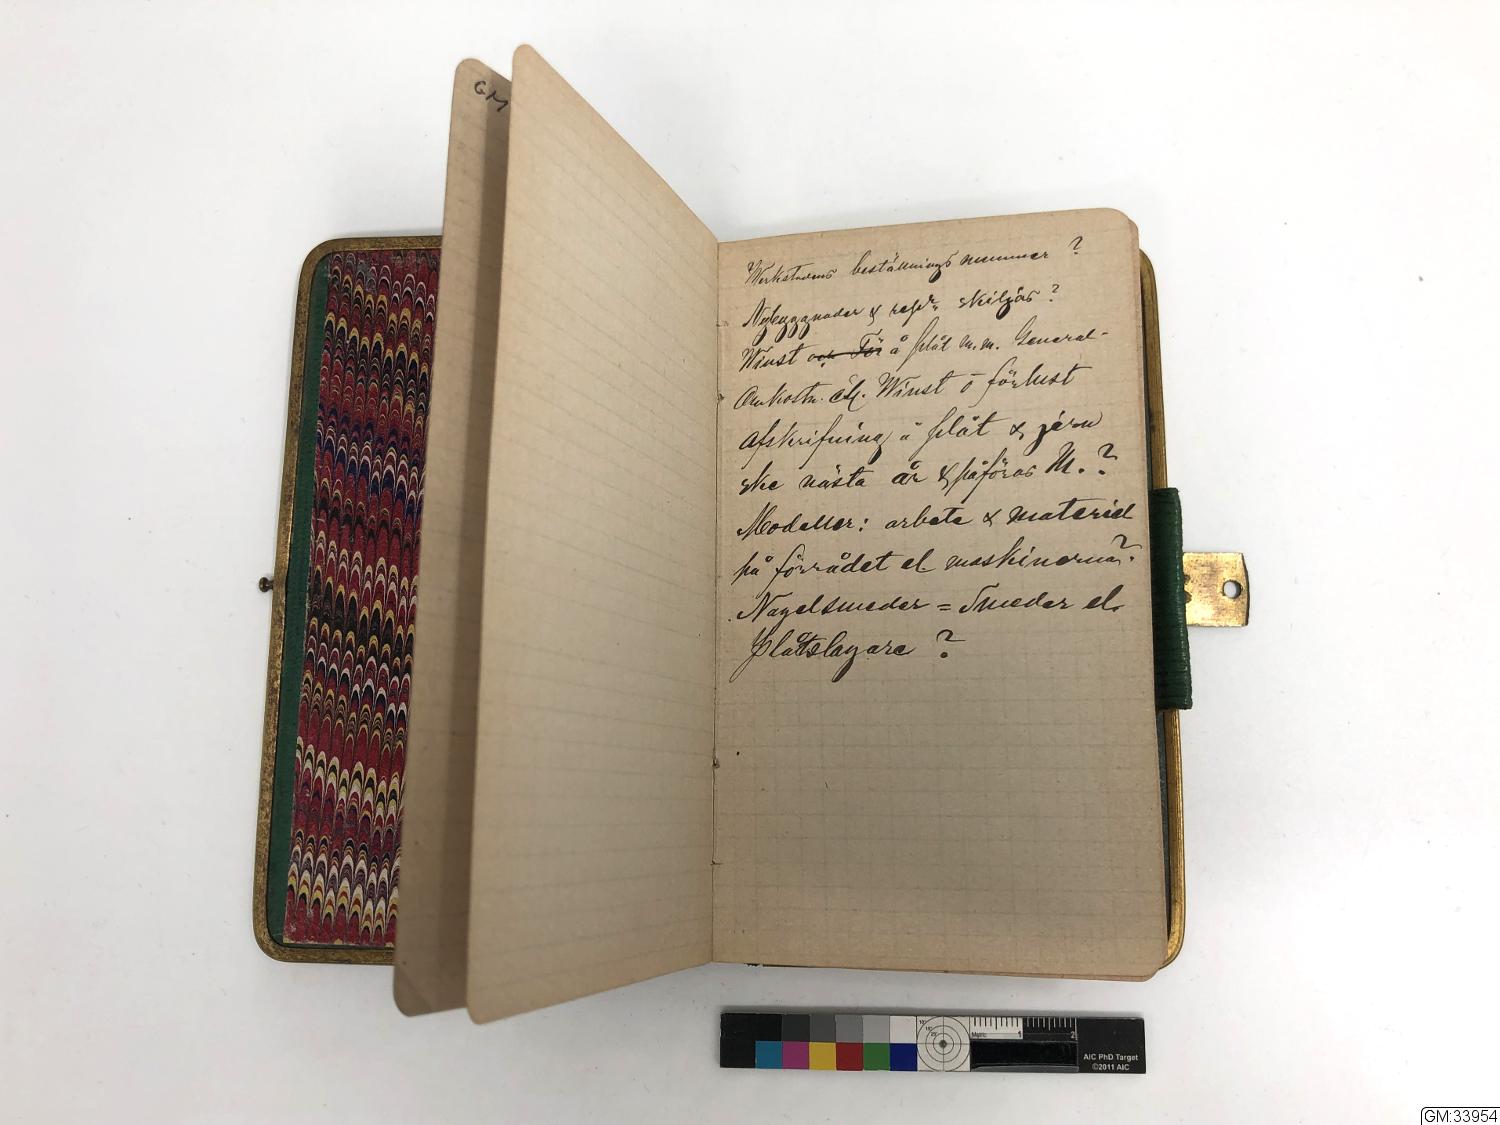 GM
Werkstadens beställnings nummer ?
Nybyggnader & repr. skiljas ?
Winst och För å plåt m.m. General-
Omkostn. el. Winst o förlust
Afskrifning å plåt & järn
ske nästa år & påföras M. ?
Modeller: arbete & materiel
på förrådet el. maskinerna?
Nagelsmeder = Smeder el.
Plåtslagare ?
Metric
1
2
AIC PhD Target
©2011 AIC
GM:33954